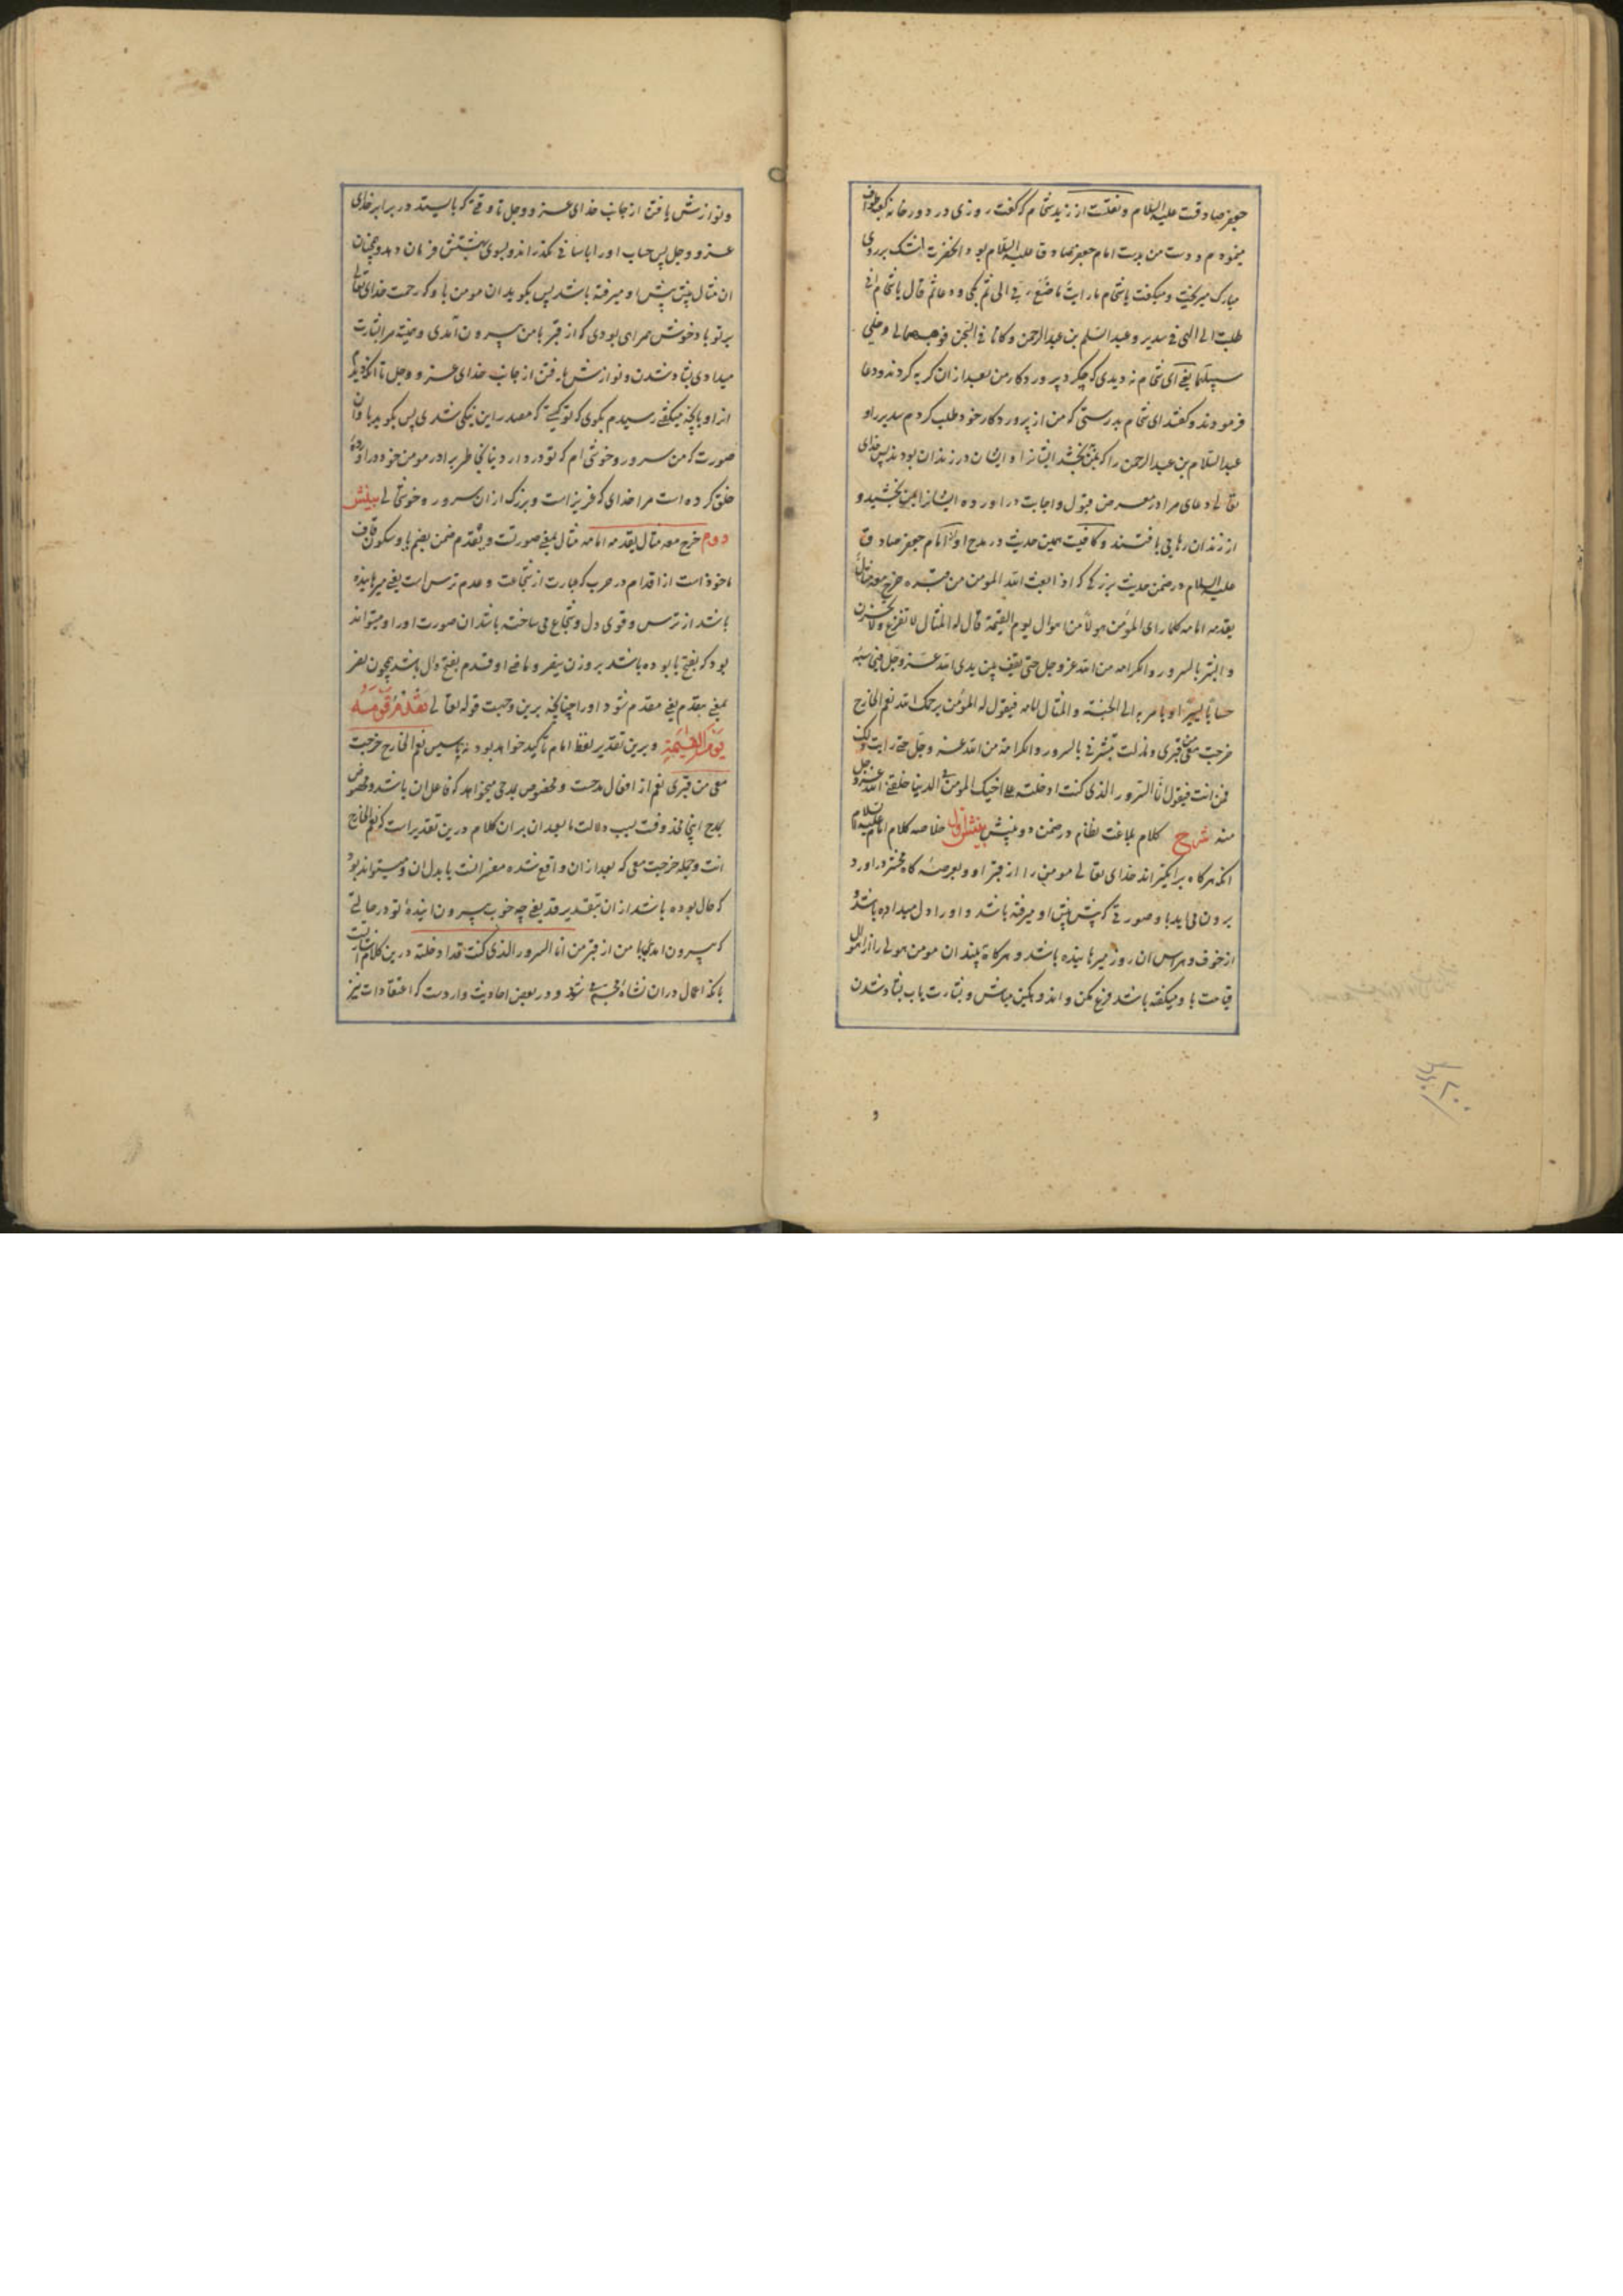 جعفر صادقست علیه السلام و نقلست از زید شحام که گفت روزی در دور خانه کعبه طواف
مینمودم و دست من بدست امام جعفر صادق علیه السلام بود و انحضرت اشک بر روی
مبارک میریخت و میگفت یا شحام ما رایت ما صنع ربی الی ثم بکی و دعا ثم قال یا شحام انی
طلبت الی الهی فی سدیر و عبد السلم بن عبد الرحمن و کانا فی السجن فوهبهما لی و خلی
سبیلهما یعنی ای شحام ندیدی که چکرد پروردکار من بعد از ان کریه کردند و دعا
فرمودند و گفتند ای شحام بدرستی که من از پروردکار خود طلب کردم سدیر را و
عبد السلام بن عبد الرحمن را که بمن بخشد ایشانرا و ایشان در زندان بودند پس خدای
تعالی دعای مرا در معرض قبول و اجابت در اورده ایشانرا بمن بخشید و
از زندان رهایی یافتند و کافیست همین حدیث در مدح او امام جعفر صادق
علیه السلام در ضمن حدیث بزرکی که اذا بعث الله المومن من قبره خرج معه مثال
یقدمه امامه کلما رای المؤمن هولا من اهوال یوم القیمة قال له المثال لا تفزع و لا تحزن
و ابشر بالسرور و الکرامه من الله عز و جل حتی یقف بین یدی الله عز و جل فیحاسبه
حسابا یسیرا و یامر به الی الجنة و المثال امامه فیقول له المؤمن یرحمک الله نعم الخارج
خرجت معی من قبری و ما زلت تبشرنی بالسرور و الکرامة من الله عز و جل حتی رایت ذلک
فمن انت فیقول انا السرور الذی کنت ادخلته علی اخیک المومن فی الدنیا خلقنی الله عز و جل
منه شرح کلام بلاغت نظام در ضمن دو بینش بینش اول خلاصه کلام امام علیه السلام
انکه هرکاه برانکیزاند خدای تعالی مومنی را از قبر او و بعرصه کاه محشر در اورد
برون می اید با و صورتی که پیش پیش او میرفته باشد و او را دل میداده باشد و
از خوف و هراس ان روز میرهانیده باشد و هرکاه بیند ان مومن هولی را از اهوال
قیامت با و میکفته باشد فزع مکن و اندوهکین مباش و بشارت یاب بشاد شدن
و نوازش یافتن از جانب خدای عز و جل تا وقتی که بایستد در برابر خدای
عز و جل پس حساب او را باسانی بکذراند و بسوی بهشتش فرمان دهد و همچنان
ان مثال پیش پیش او میرفته باشد پس بکوید ان مومن با و که رحمت خدای تعالی
بر تو باد خوش همراهی بودی که از قبر با من بیرون آمدی و همیشه مرا بشارت
میدادی بشاد شدن و نوازش یافتن از جانب خدای عز و جل تا انکه دیدم
از او بانچه میکفتی رسیدم بکوی که تو کیستی که مصدر این نیکی شدی پس بکوید با و ان
صورت که من سرور و خوشی ام که تو در دار دنیا بخاطر برادر مومن خود در اورده
خلق کرده است مرا خدای که عزیز است و بزرک از ان سرور و خوشحالی بینش
دوم خرج معه مثال یقدمه امامه مثال بمعنی صورتست و یقدم ضمن بضم یا و سکون قاف
ماخوذ است از اقدام در حرب که عبارت از شجاعت و عدم ترس است یعنی میرهانیده
باشد از ترس و قوی دل و شجاع می ساخته باشد ان صورت او را و میتواند
بود که بفتح یا بوده باشد بر وزن ینصر و ماضی او قدم بفتح دال باشد همچون نصر
بمعنی یتقدم یعنی مقدم شود او را چنانچه برین وجهست قوله تعالی یقدم قومه
یوم القیمة و برین تقدیر لفظ امام تاکید خواهد بود نه تاسیس نعم الخارج خرجت
معی من قبری نعم از افعال مدحست و مخصوص بمدحی میخواهد که فاعل ان باشد و مخصوص
بمدح اینجا محذوفست بسبب دلالت ما بعد ان بر ان کلام درین تقدیر است که نعم الخارج
انت و جمله خرجت معی که بعد از ان واقع شده مفسر انت یا بدل ان و میتواند بود
که حال بوده باشد از ان بتقدیر قد یعنی چه خوب بیرون ایندهٔ تو در حالتی
که بیرون امدی با من از قبر من انا السرور الذی کنت قد ادخلته درین کلام اشارتست
بانکه اعمال در ان نشاة مجسم می شود و در بعض احادیث واردست که اعتقادات نیز